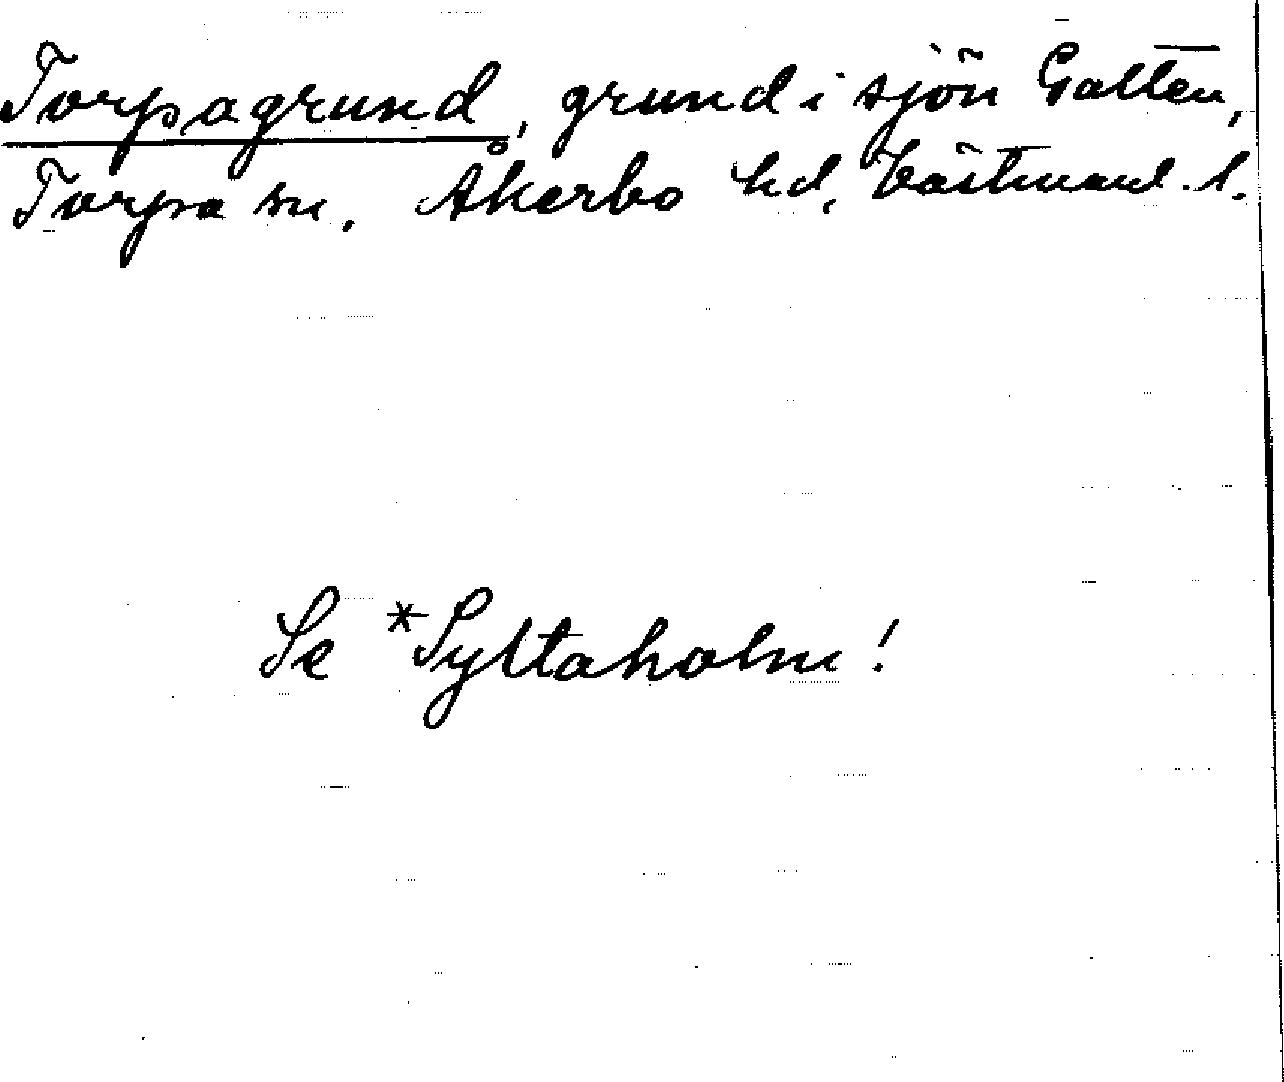 Torpagrund, grund i sjön Galten,
Torpa sn, Åkerbo hd, Västmanl. l.
Se *Syltaholm!